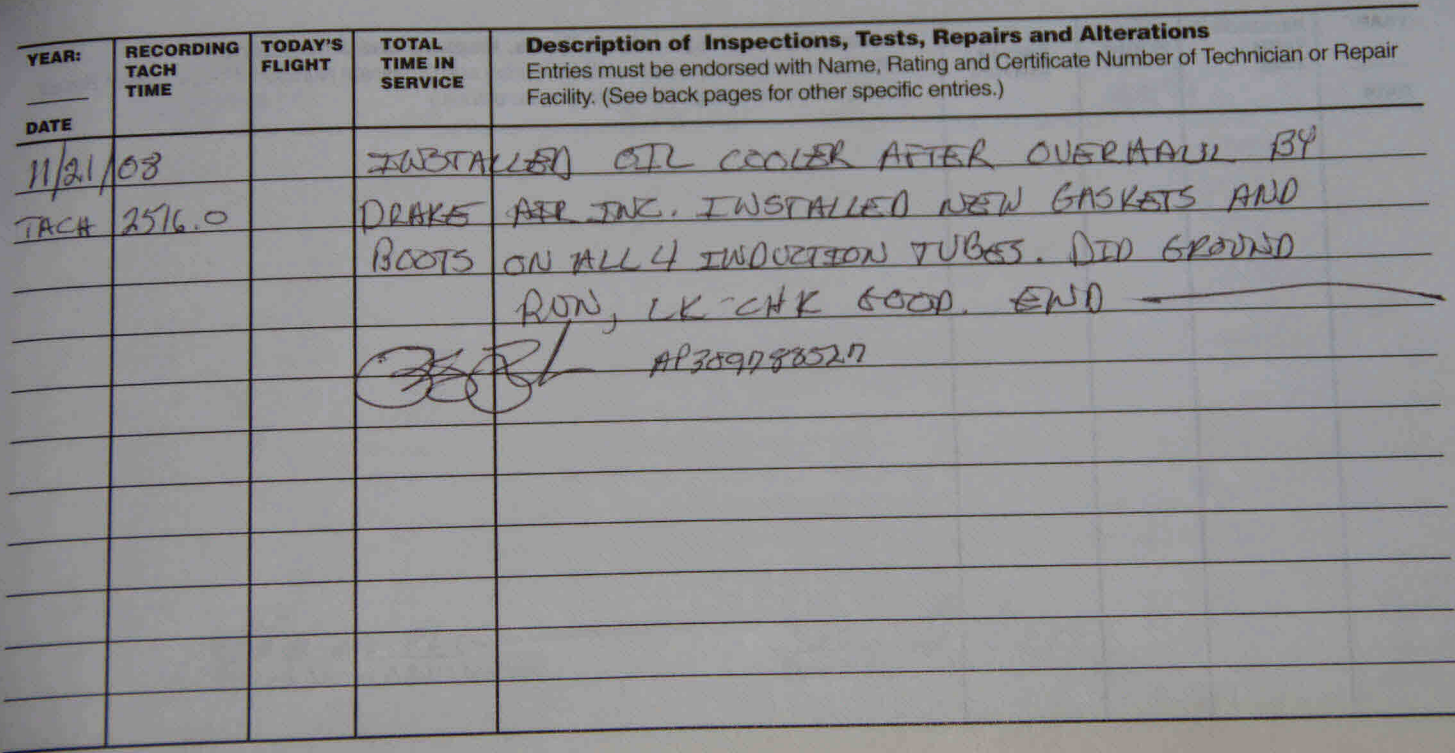 YEAR: RECORDING TACH TIME TODAY'S FLIGHT TOTAL TIME IN SERVICE Description of Inspections, Tests, Repairs and Alterations
Entries must be endorsed with Name, Rating and Certificate Number of Technician or Repair
Facility. (See back pages for other specific entries.)
DATE
11/21/08 INSTALLED OIL COOLER AFTER OVERHAUL BY
TACH 2516.0 DRAKE AIR INC. INSTALLED NEW GASKETS AND
BOOTS ON ALL 4 INDUCTION TUBES. DID GROUND
RUN, LK-CHK GOOD. END
AP309788527